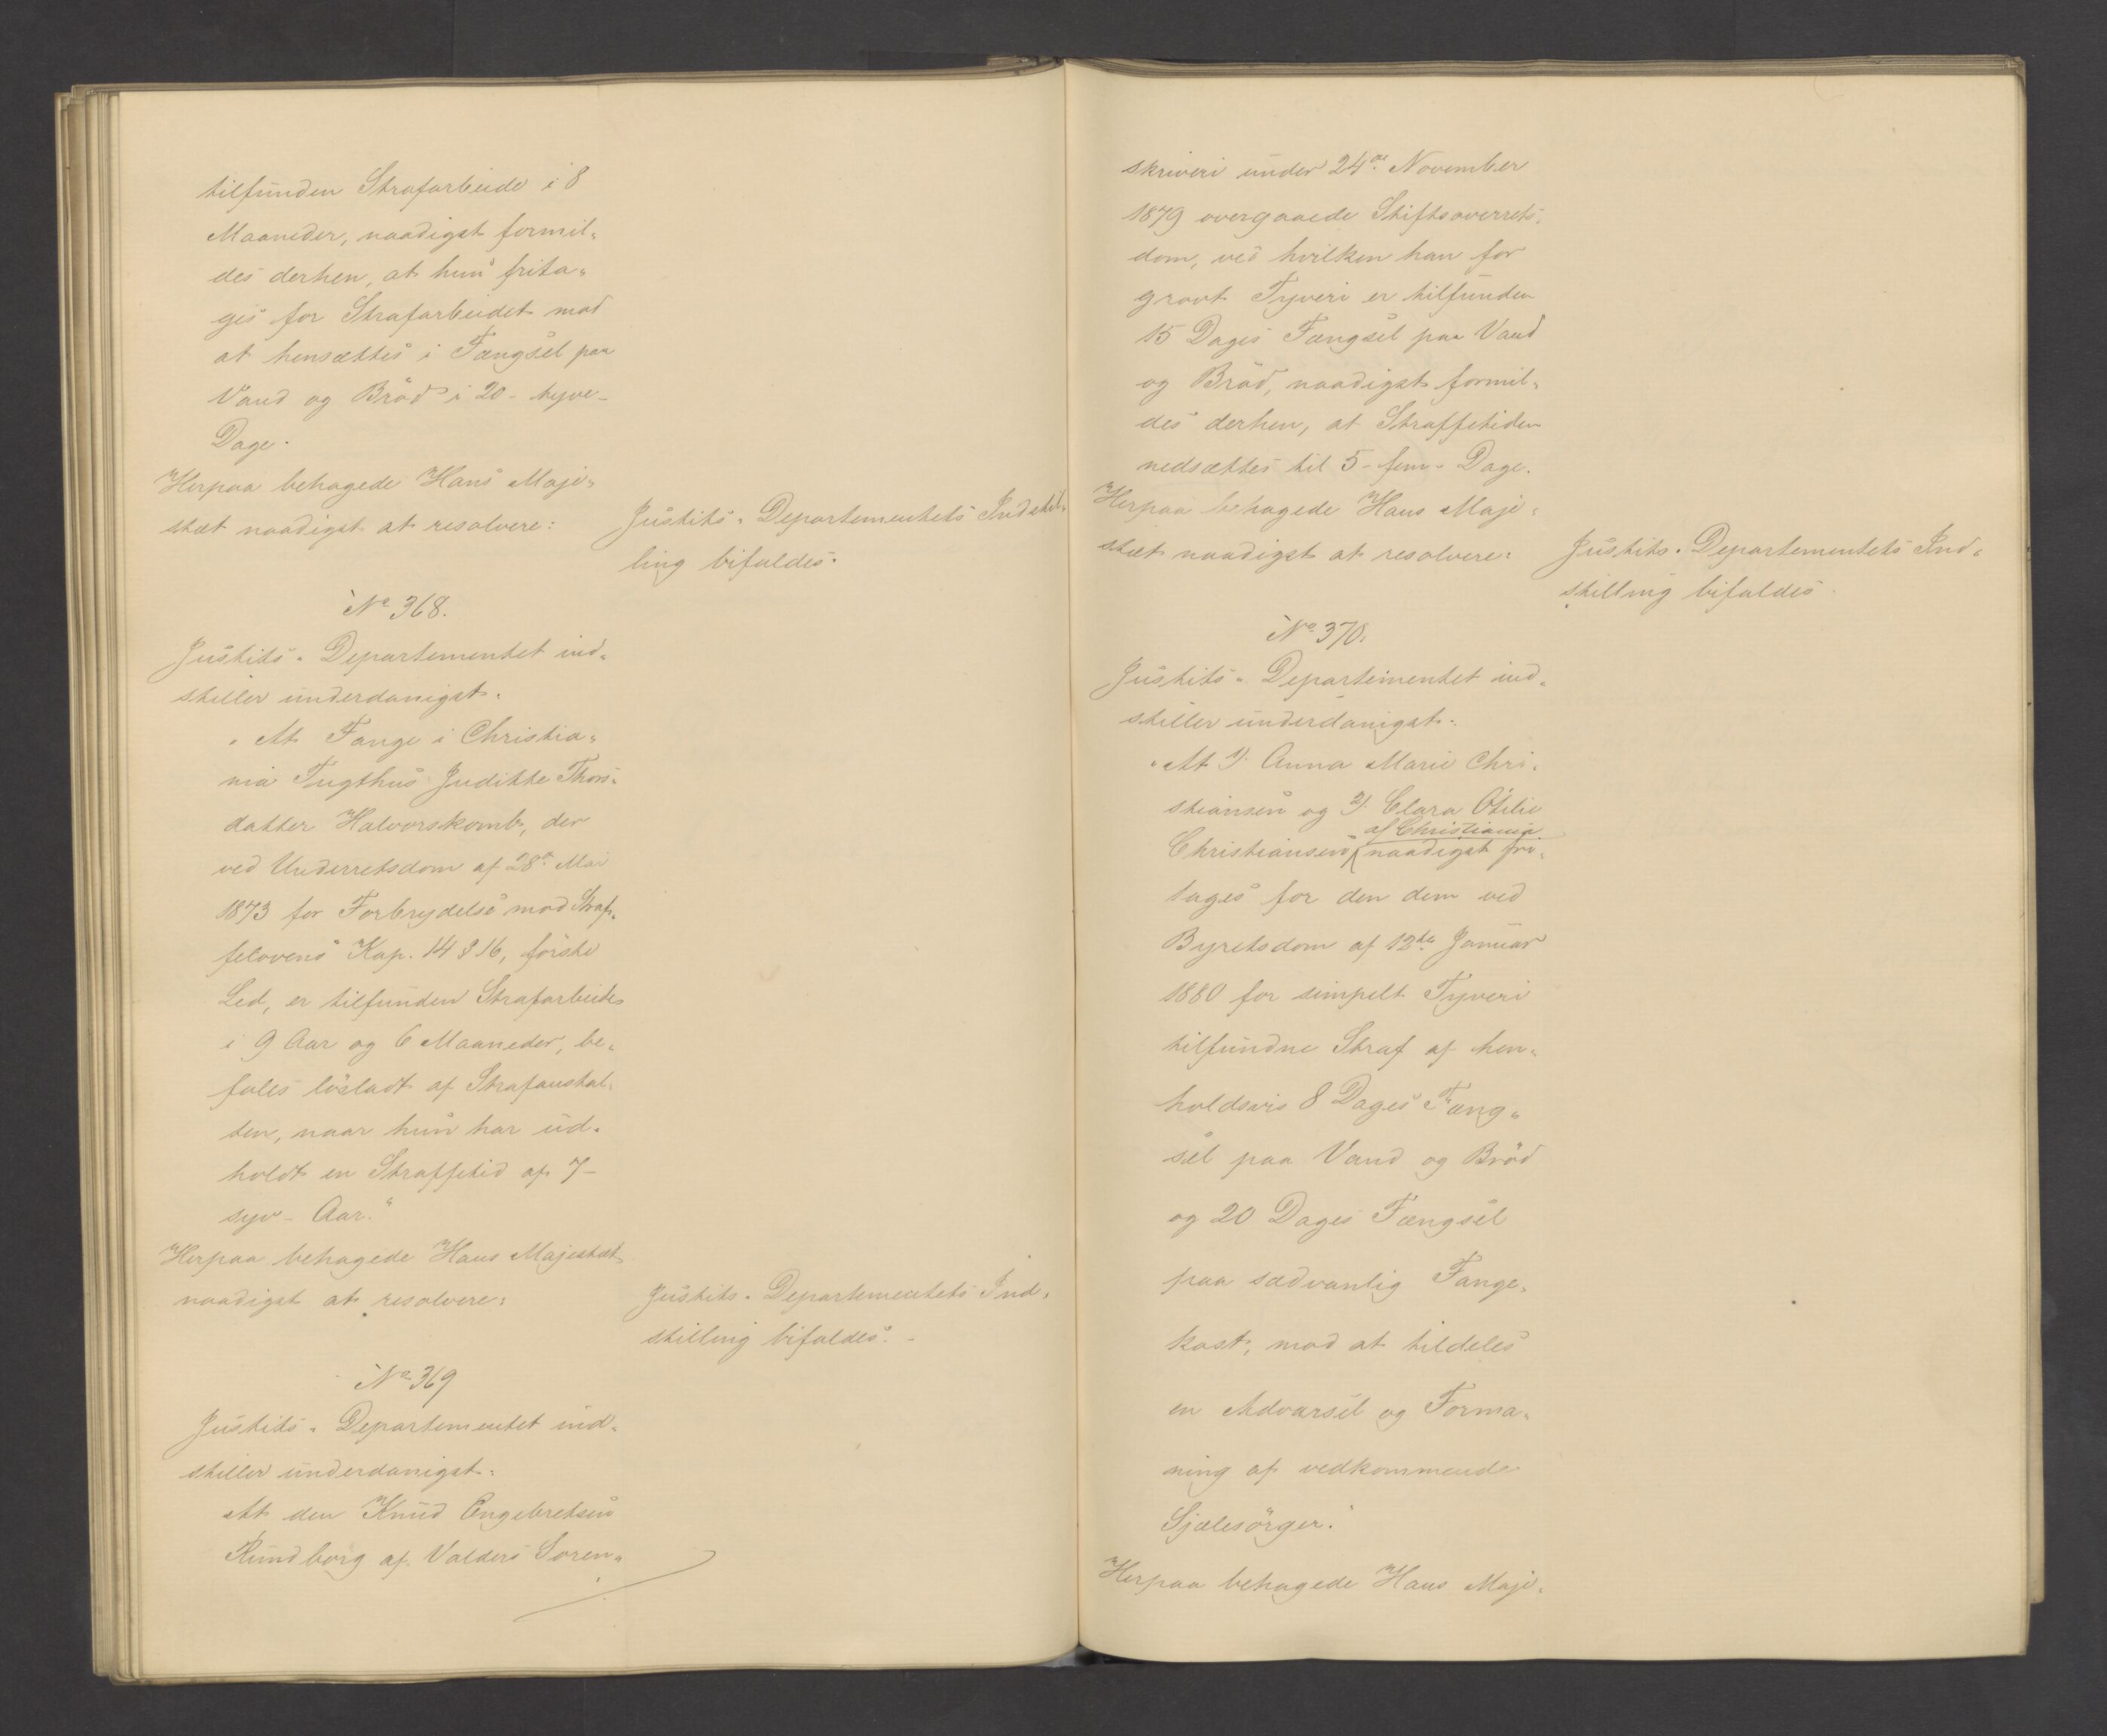 tilfunden Strafarbeide i 8
Maaneder, naadigst formil-
des derhen, at hun frita-
ges for Strafarbeidet mod
at hensættes i Fængsel paa
Vand og Bröd i 20 - tyve -
Dage.
Herpaa behagede Hans Maje-
stæt naadigst at resolvere:
Justits-Departementets Indstil-
ling bifaldes.
No 368.
Justits-Departementet ind-
stiller underdanigst:
"At Fange i Christia-
nia Tugthus Judithe Thors-
datter Halvorskomb, der
ved Underretsdom af 28de Mai
1873 for Forbrydelse mod Straf-
felovens Kap. 14 § 16, förste
Led, er tilfunden Strafarbeide
i 9 Aar og 6 Maaneder, be-
fales lösladt af Strafanstal-
ten, naar hun har ud-
holdt en Straffetid af 7 -
syv - Aar."
Herpaa behagede Hans Majestæt
naadigst at resolvere:
Justits-Departementets Ind-
stilling bifaldes.
No 369
Justits-Departementet ind-
stiller underdanigst:
At den Knud Engebretsen
Rundborg af Valders Soren-
skriveri under 24de November
1879 overgaaede Stiftsoverrets-
dom, ved hvilken han for
grovt Tyveri er tilfunden
15 Dages Fængsel paa Vand
og Bröd, naadigst formil-
des derhen, at Straffetiden
nedsættes til 5 - fem - Dage.
Herpaa behagede Hans Maje-
stæt naadigst at resolvere:
Justits-Departementets Ind-
stilling bifaldes.
No 370.
Justits-Departementet ind-
stiller underdanigst:
"At 1) Anna Marie Chri-
stiansen og 2) Clara Otilie
af Christiania
Christiansen naadigst fri-
tages for den dem ved
Byretsdom af 12te Januar
1880 for simpelt Tyveri
tilfundne Straf af hen-
holdsvis 8 Dages Fæng-
sel paa Vand og Bröd
og 20 Dages Fængsel
paa sædvanlig Fange-
kost, mod at tildeles
en Advarsel og Forma-
ning af vedkommende
Sjælesörger."
Herpaa behagede Hans Maje-